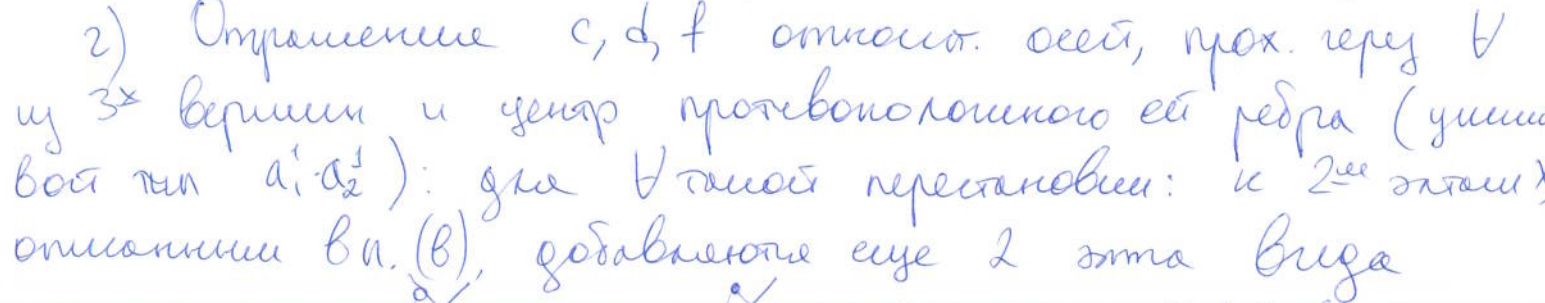 г) Отражение c, d, f относит. осей, прох. через ∀
из 3х вершин и центр противоположного ей ребра (цикло
вой тип a₁¹·a₂¹): для ∀ такой перестановки: к 2ум элтам,
описанным в п. (в), добавляются еще 2 элта вида